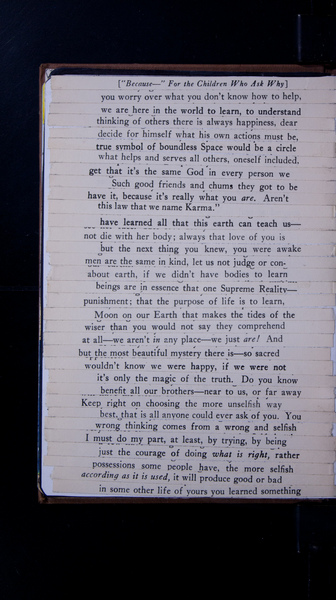 ["Because—" For the Children Who Ask Why]
you worry over what you don't know how to help,
we are here in the world to learn, to understand
thinking of others there is always happiness, dear
decide for himself what his own actions must be,
true symbol of boundless Space would be a circle
what helps and serves all others, oneself included,
get that it's the same God in every person we
Such good friends and chums they got to be
have it, because it's really what you are. Aren't
this law that we name Karma."
have learned all that this earth can teach us—
not die with her body; always that love of you is
but the next thing you knew, you were awake
men are the same in kind, let us not judge or con-
about earth, if we didn't have bodies to learn
beings are in essence that one Supreme Reality—
punishment; that the purpose of life is to learn,
Moon on our Earth that makes the tides of the
wiser than you would not say they comprehend
at all—we aren't in any place—we just are! And
but the most beautiful mystery there is—so sacred
wouldn't know we were happy, if we were not
it's only the magic of the truth. Do you know
benefit all our brothers—near to us, or far away
Keep right on choosing the more unselfish way
best, that is all anyone could ever ask of you. You
wrong thinking comes from a wrong and selfish
I must do my part, at least, by trying, by being
just the courage of doing what is right, rather
possessions some people have, the more selfish
according as it is used, it will produce good or bad
in some other life of yours you learned something